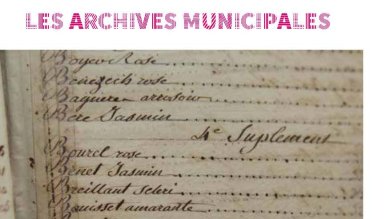 LES ARCHIVES MUNICIPALES
Boyer Rose
Benezech rose
Baquere arrosoir
Bere Jasmin
4e Suplement
Bourel rose
Benet Jasmin
Breillant seleri
Bouisset amarante